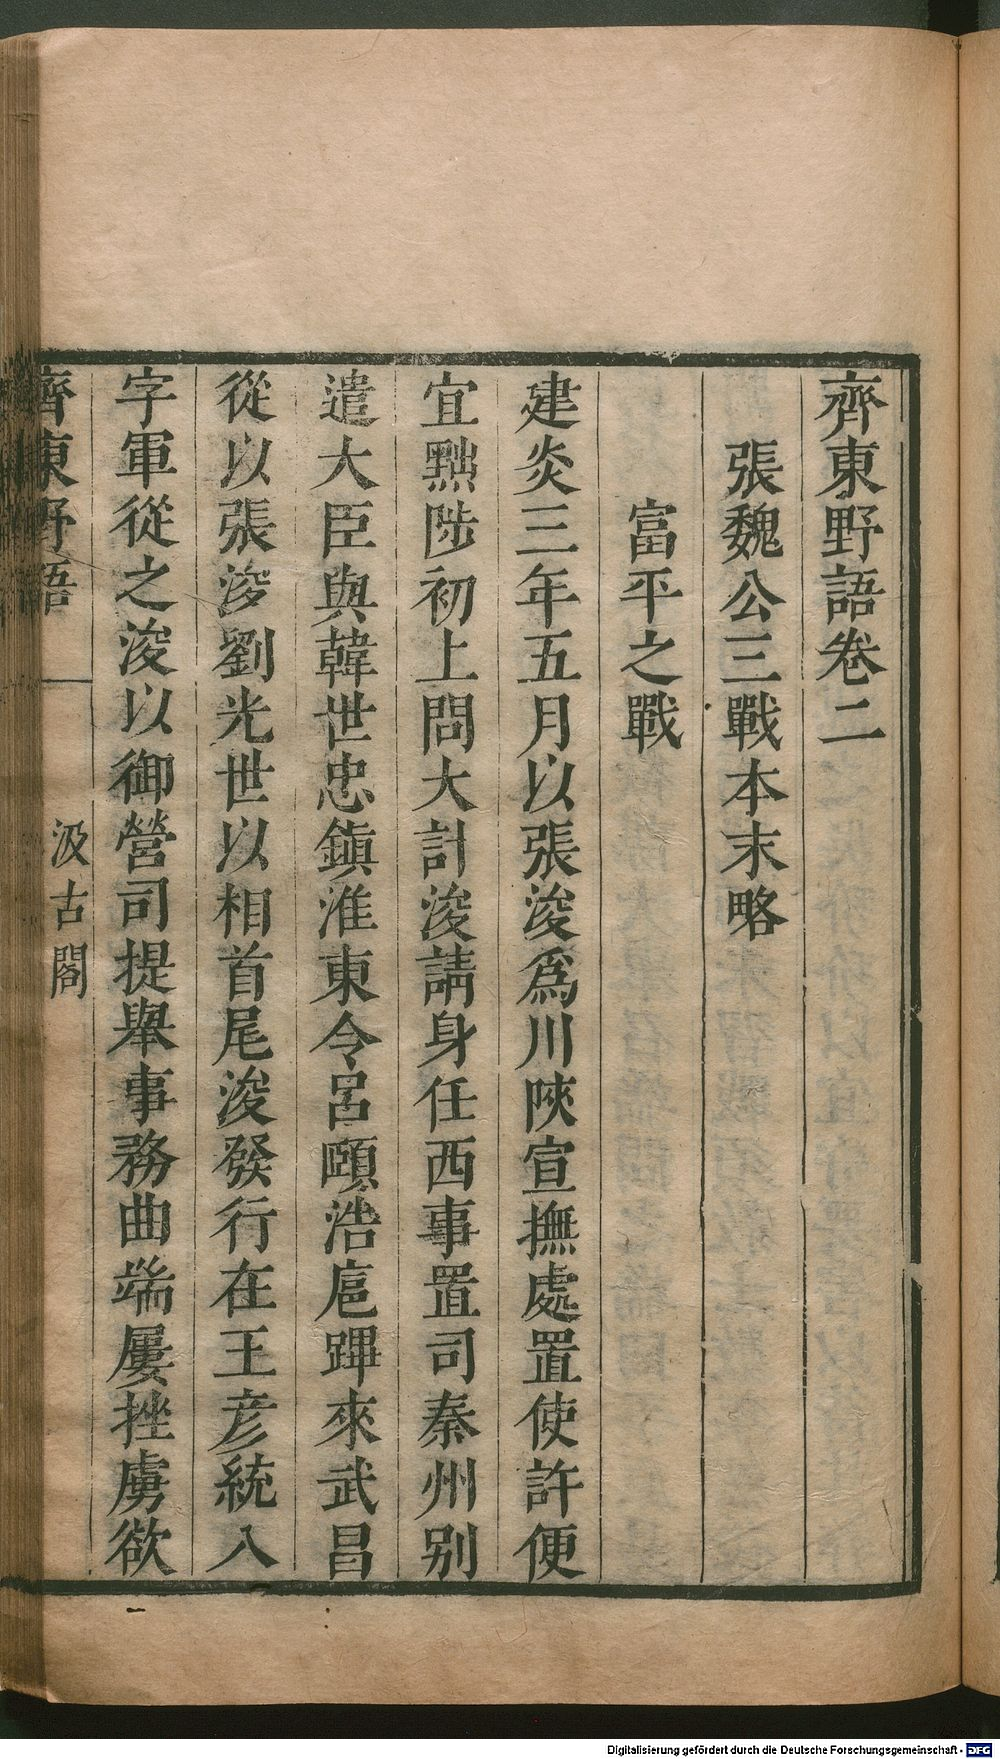 齊東野語卷二
張魏公三戰本末略
富平之戰
建炎三年五月以張浚爲川陝宣撫處置使許便
宜黜陟初上問大計浚請身任西事置司秦州别
遣大臣與韓世忠鎮淮東令呂頤浩扈蹕來武昌
從以張浚劉光世以相首尾浚發行在王彦統八
字軍從之浚以御營司提舉事務曲端屢挫虜欲
齊東野語
汲古閣
Digitalisierung gefördert durch die Deutsche Forschungsgemeinschaft - DFG